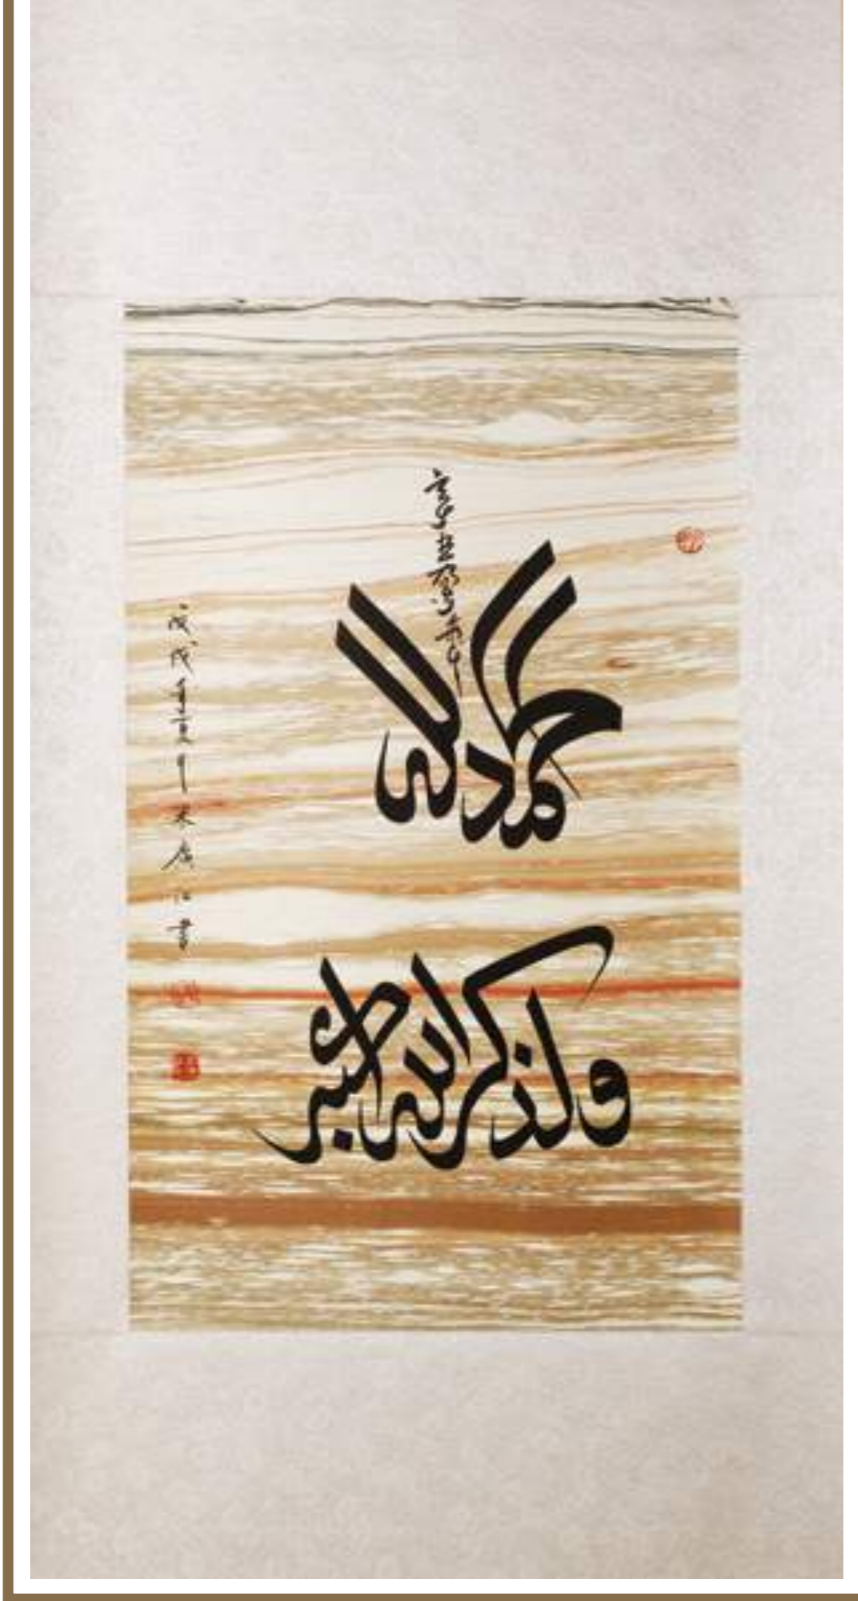 الحمد لله
ولذكر الله اكبر
戊戌年夏月米廣江書